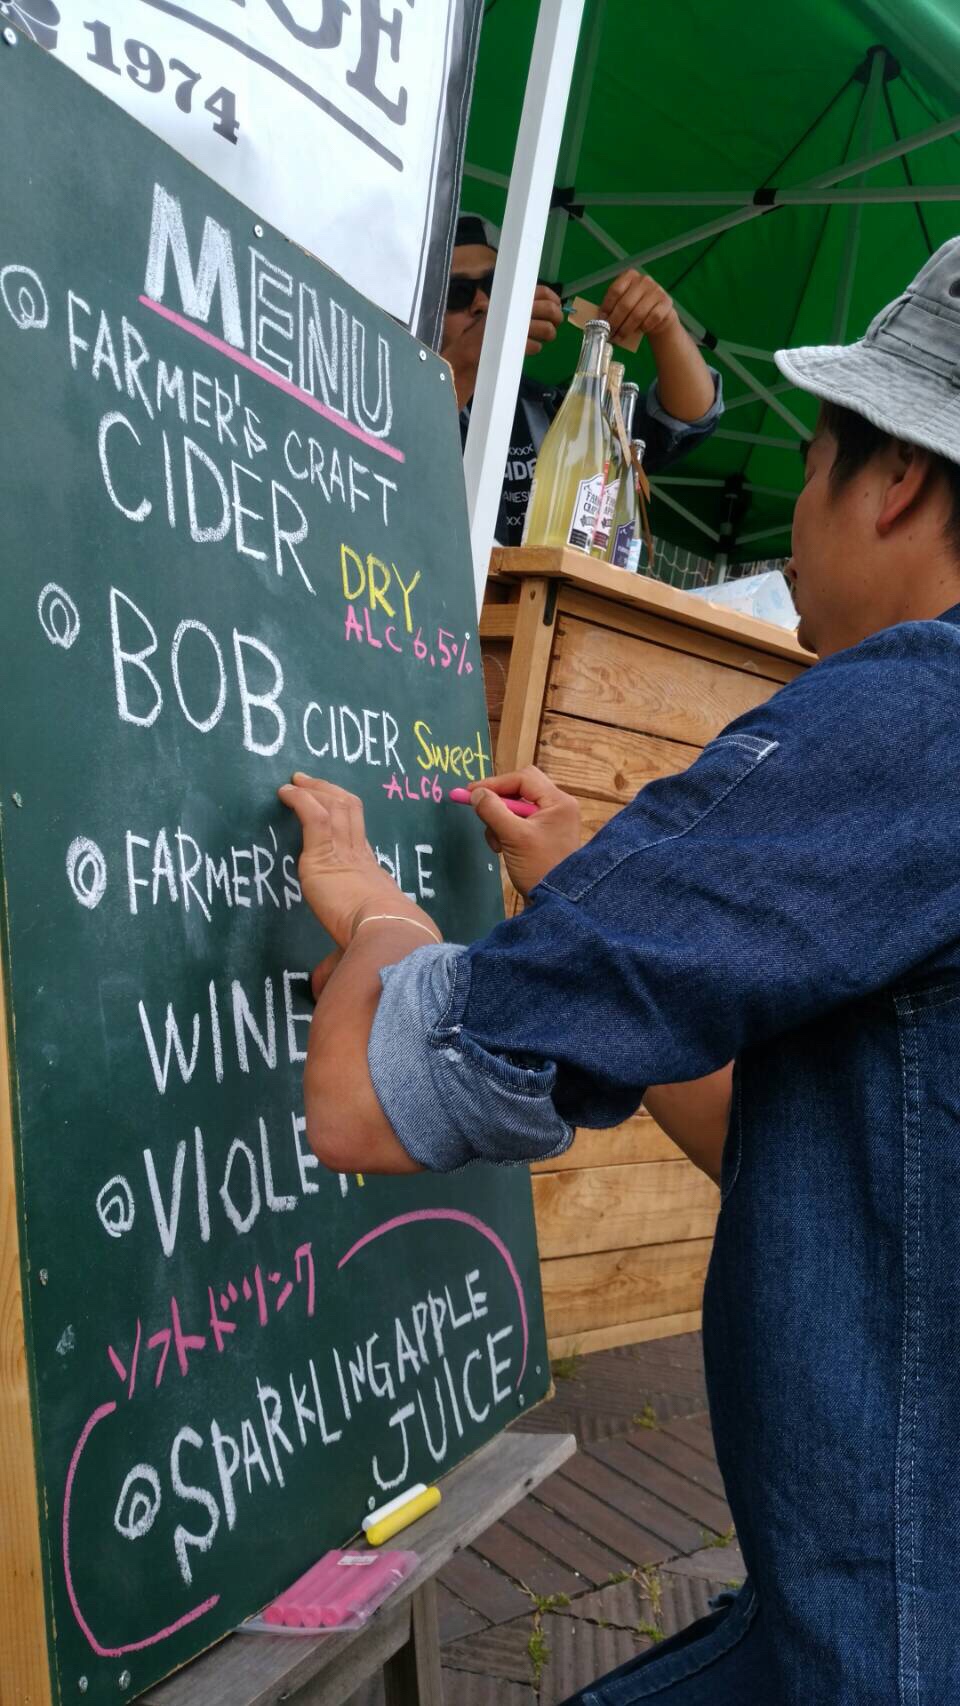 1974
MENU
FARMER'S CRAFT
CIDER
DRY
ALC 6.5%
BOB CIDER Sweet
ALC6
FARMER'S
WINE
VIOLET
ソフトドリンク
SPARKLING APPLE
JUICE